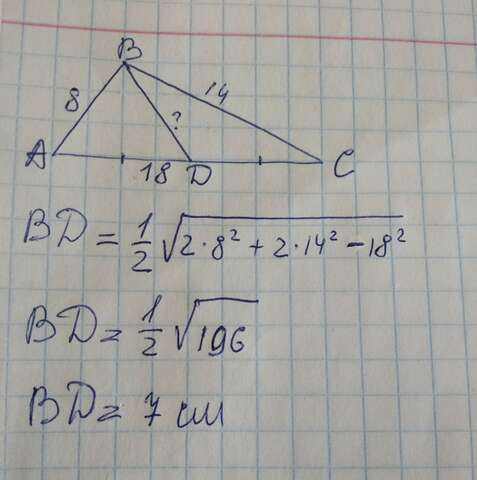 B
8
14
?
A
18
D
C
BD = 1/2 √(2·8² + 2·14² − 18²)
BD = 1/2 √196
BD = 7 см